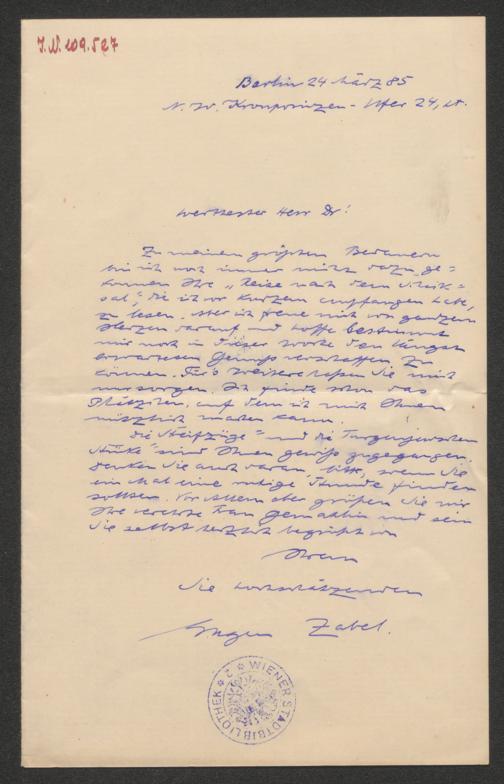 J.N. 109.527
Berlin 24 März 85
N. W. Kronprinzen-Ufer 24, pt.
Werthester Herr Dr!
Zu meinem größten Bedauern
bin ich noch immer nicht dazu ge-
kommen Ihre „Reise nach dem Schick-
sal“, die ich vor Kurzem empfangen habe,
zu lesen. Aber ich freue mich von ganzem
Herzen darauf und hoffe bestimmt
mir noch in dieser Woche den längst
erwarteten Genuß verschaffen zu
können. Für's Weitere lassen Sie mich
nur sorgen. Ich finde schon das
Plätzchen, auf dem ich mich Ihnen
nützlich machen kann.
Die „Streifzüge“ und die Turgenjewschen
Stücke sind Ihnen gewiß zugegangen.
Denken Sie auch daran, bitte, wenn Sie
ein Mal eine ruhige Stunde finden
sollten. Vor Allem aber grüßen Sie mir
Ihre verehrte Frau Gemahlin und sein
Sie selbst herzlich begrüßt von
Ihrem
Sie hochschätzenden
Eugen Zabel.
WIENER STADTBIBLIOTHEK